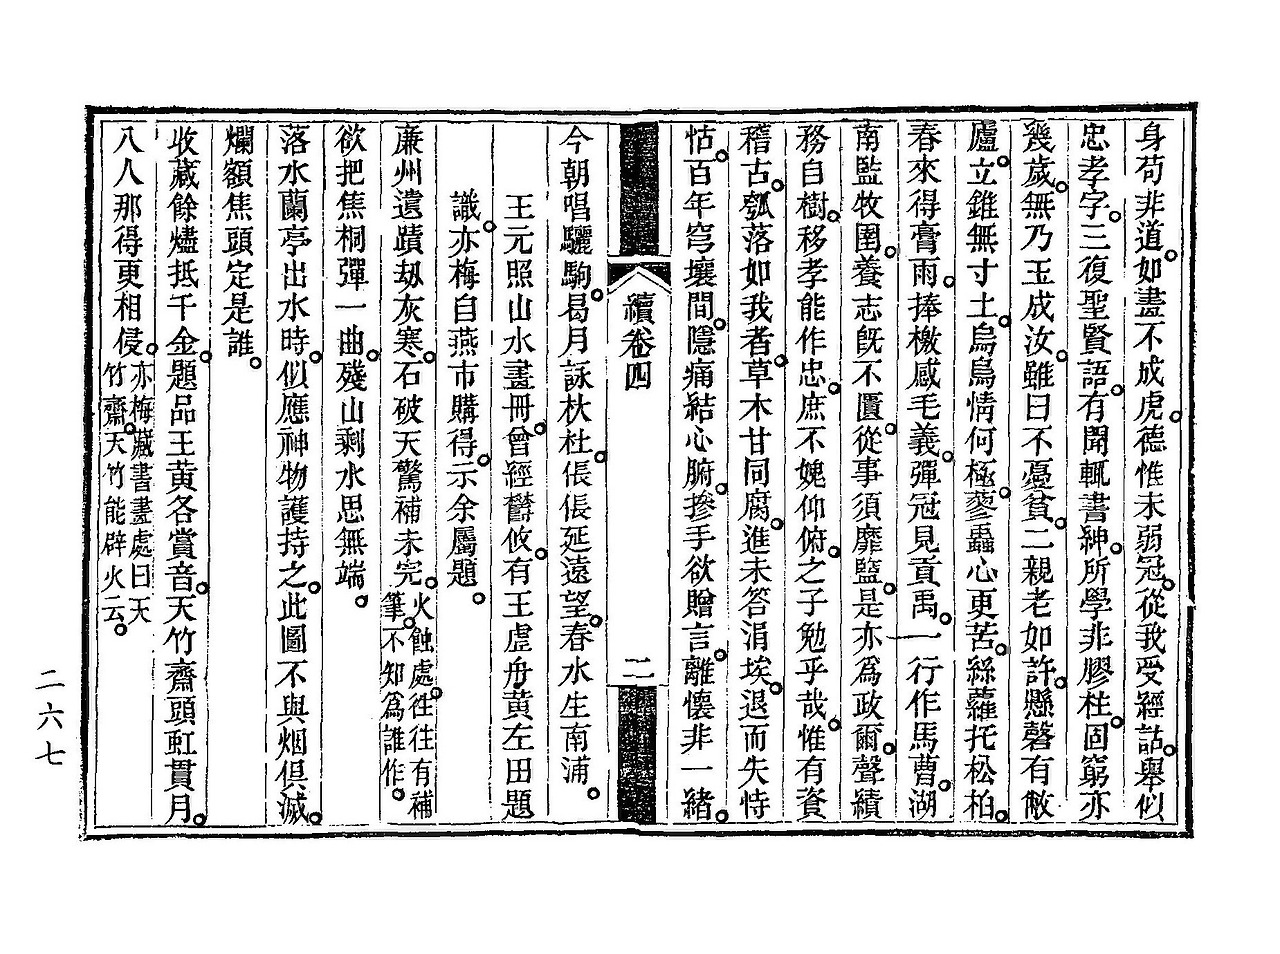 身苟非道。如畫不成虎。德惟未弱冠。從我受經詁。舉似
忠孝字。三復聖賢語。有聞輒書紳。所學非膠柱。固窮亦
幾歲。無乃玉成汝。雖曰不憂貧。二親老如許。懸磬有敝
廬。立錐無寸土。烏鳥情何極。蓼蟲心更苦。絲蘿托松柏。
春來得膏雨。捧檄感毛義。彈冠見貢禹。一行作馬曹。湖
南監牧圉。養志旣不匱。從事須靡盬。是亦爲政爾。聲績
務自樹。移孝能作忠。庶不媿仰俯。之子勉乎哉。惟有資
稽古。瓠落如我者。草木甘同腐。進未答涓埃。退而失恃
怙。百年穹壤間。隱痛結心腑。摻手欲贈言。離懷非一緒。
續卷四
二
今朝唱驪駒。曷月詠杕杜。倀倀延遠望。春水生南浦。
王元照山水畫冊。曾經欝攸。有王虛舟黃左田題
識。亦梅自燕市購得。示余屬題。
廉州遺蹟刼灰寒。石破天驚補未完。火蝕處。往往有補
筆。不知爲誰作。
欲把焦桐彈一曲。殘山剩水思無端。
落水蘭亭出水時。似應神物護持之。此圖不與烟俱滅。
爛額焦頭定是誰。
收藏餘燼抵千金。題品王黃各賞音。天竹齋頭虹貫月。
八人那得更相侵。亦梅藏書畫處曰天
竹齋。天竹能辟火云。
二六七